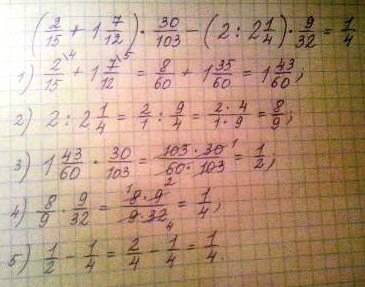 (2/15 + 1 7/12) · 30/103 − (2 : 2 1/4) · 9/32 = 1/4
1) 2/15 \4 + 1 7/12 \5 = 8/60 + 1 35/60 = 1 43/60;
2) 2 : 2 1/4 = 2/1 : 9/4 = 2·4/1·9 = 8/9;
3) 1 43/60 · 30/103 = 103·30 1/60·103 = 1/2;
4) 8/9 · 9/32 = 1 8·9 2/9·32 4 = 1/4;
5) 1/2 − 1/4 = 2/4 − 1/4 = 1/4.